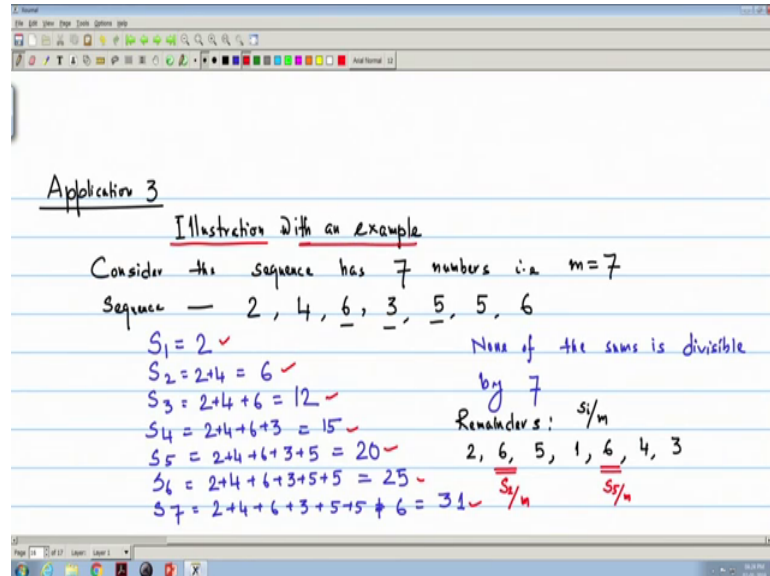 Journal
File Edit View Page Tools Options Help
Arial Normal 12
Application 3
Illustration with an example
Consider the sequence has 7 numbers i.e m=7
Sequence — 2, 4, 6, 3, 5, 5, 6
S1 = 2 ✓
S2 = 2+4 = 6 ✓
S3 = 2+4+6 = 12 ✓
S4 = 2+4+6+3 = 15 ✓
S5 = 2+4+6+3+5 = 20 ✓
S6 = 2+4+6+3+5+5 = 25 ✓
S7 = 2+4+6+3+5+5+6 = 31 ✓
None of the sums is divisible
by 7
Remainders: Si/m
2, 6, 5, 1, 6, 4, 3
S2/m S5/m
Page 16 of 17 Layer: Layer 1